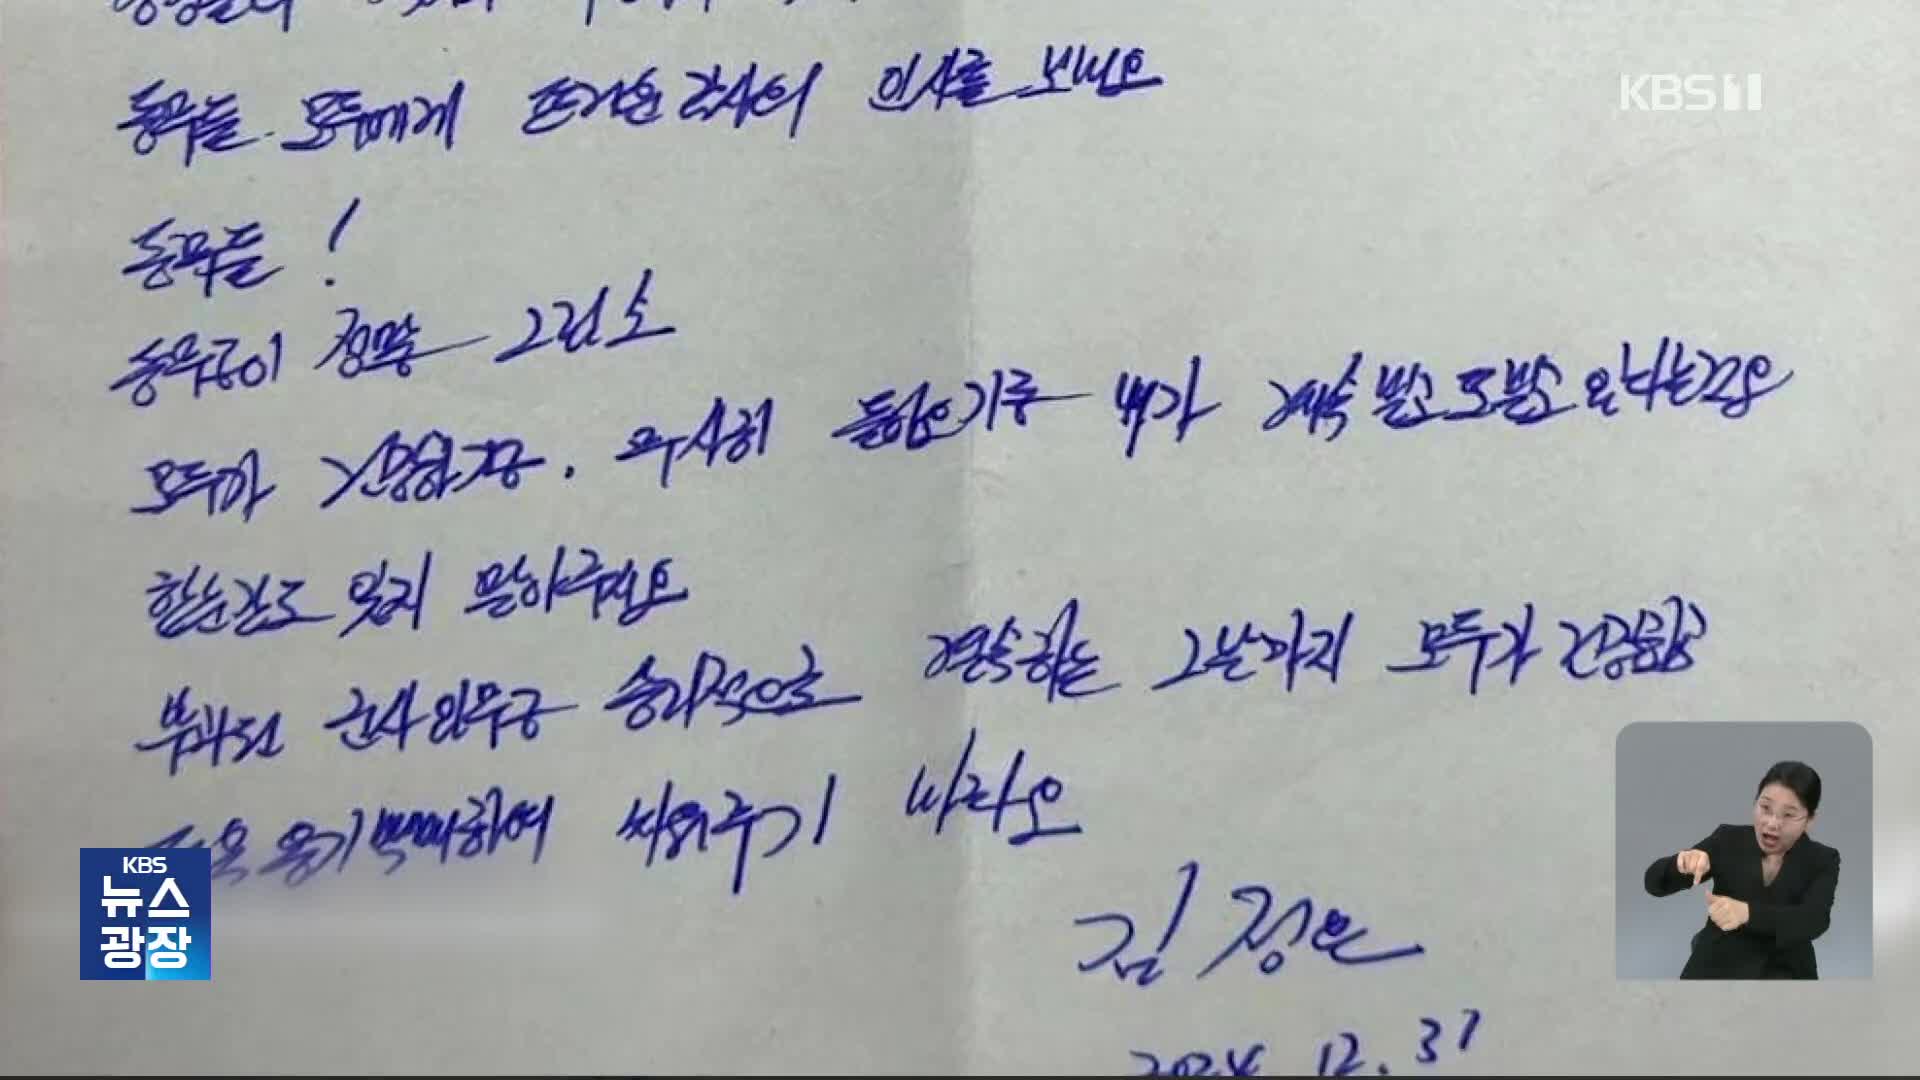 동무들 모두에게 뜨거운 감사의 인사를 보내오
KBS 1
동무들!
동무들이 정말 그립소
모두가 건강하게 무사히 돌아오기를 내가 계속 빌고 또 빌고 있다는것을
한순간도 잊지 말아주세요
부과된 군사임무를 승리적으로 결속하는 그날까지 모두가 건강하고
더욱 용기백배하여 싸워주기 바라오
KBS
뉴스
광장
김정은
2024. 12. 31